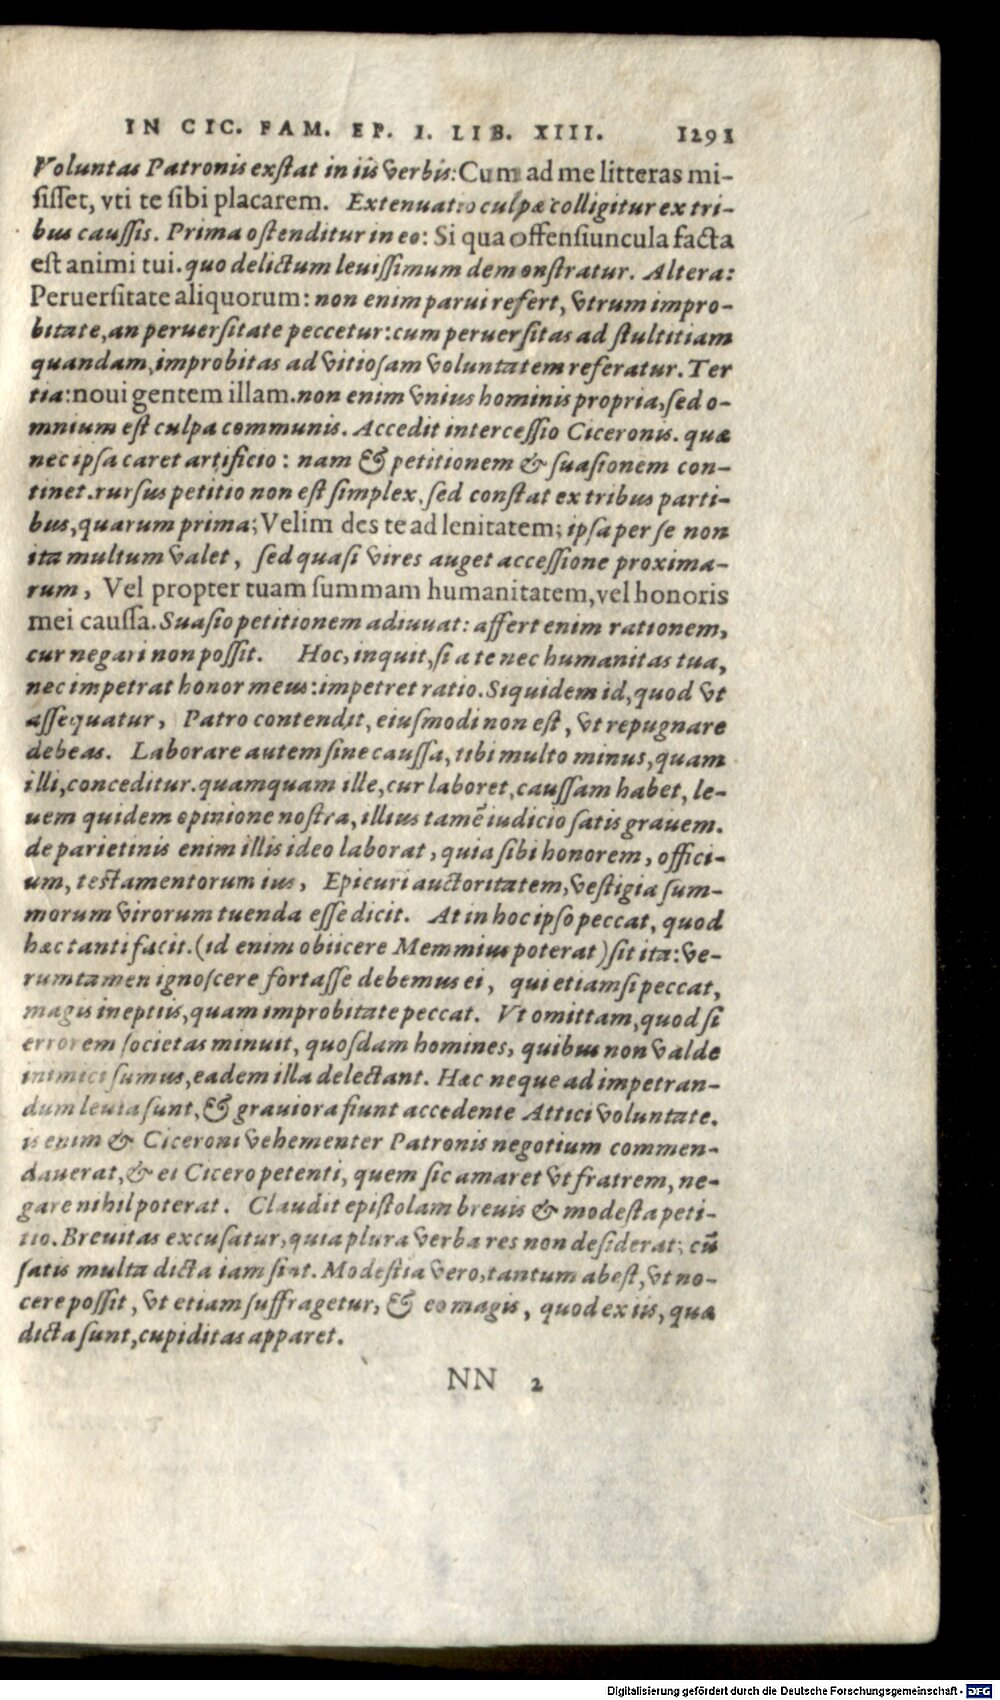 IN CIC. FAM. EP. I. LIB. XIII. 1291
Voluntas Patronis exstat in iis verbis: Cum ad me litteras mi-
sisset, vti te sibi placarem. Extenuatio culpæ colligitur ex tri-
bus caussis. Prima ostenditur in eo: Si qua offensiuncula facta
est animi tui. quo delictum leuissimum demonstratur. Altera:
Peruersitate aliquorum: non enim parui refert, vtrum impro-
bitate, an peruersitate peccetur: cum peruersitas ad stultitiam
quandam, improbitas ad vitiosam voluntatem referatur. Ter
tia: noui gentem illam. non enim vnius hominis propria, sed o-
mnium est culpa communis. Accedit intercessio Ciceronis. quæ
nec ipsa caret artificio: nam & petitionem & suasionem con-
tinet. rursus petitio non est simplex, sed constat ex tribus parti-
bus, quarum prima; Velim des te ad lenitatem; ipsa per se non
ita multum valet, sed quasi vires auget accessione proxima-
rum, Vel propter tuam summam humanitatem, vel honoris
mei caussa. Suasio petitionem adiuuat: affert enim rationem,
cur negari non possit. Hoc, inquit, si a te nec humanitas tua,
nec impetrat honor meus: impetret ratio. Siquidem id, quod vt
assequatur, Patro contendit, eiusmodi non est, vt repugnare
debeas. Laborare autem sine caussa, tibi multo minus, quam
illi, conceditur. quamquam ille, cur laboret, caussam habet, le-
uem quidem opinione nostra, illius tamē iudicio satis grauem.
de parietinis enim illis ideo laborat, quia sibi honorem, offici-
um, testamentorum ius, Epicuri auctoritatem, vestigia sum-
morum virorum tuenda esse dicit. At in hoc ipso peccat, quod
hæc tanti facit. (id enim obiicere Memmius poterat) sit ita: ve-
rumtamen ignoscere fortasse debemus ei, qui etiamsi peccat,
magis ineptiis, quam improbitate peccat. Vt omittam, quod si
errorem societas minuit, quosdam homines, quibus non valde
inimici sumus, eadem illa delectant. Hæc neque ad impetran-
dum leuia sunt, & grauiora fiunt accedente Attici voluntate.
is enim & Ciceroni vehementer Patronis negotium commen-
dauerat, & ei Cicero petenti, quem sic amaret vt fratrem, ne-
gare nihil poterat. Claudit epistolam breuis & modesta peti-
tio. Breuitas excusatur, quia plura verba res non desiderat; cū
satis multa dicta iam sint. Modestia vero, tantum abest, vt no-
cere possit, vt etiam suffragetur, & eo magis, quod ex iis, quæ
dicta sunt, cupiditas apparet.
NN 2
Digitalisierung gefördert durch die Deutsche Forschungsgemeinschaft - DFG